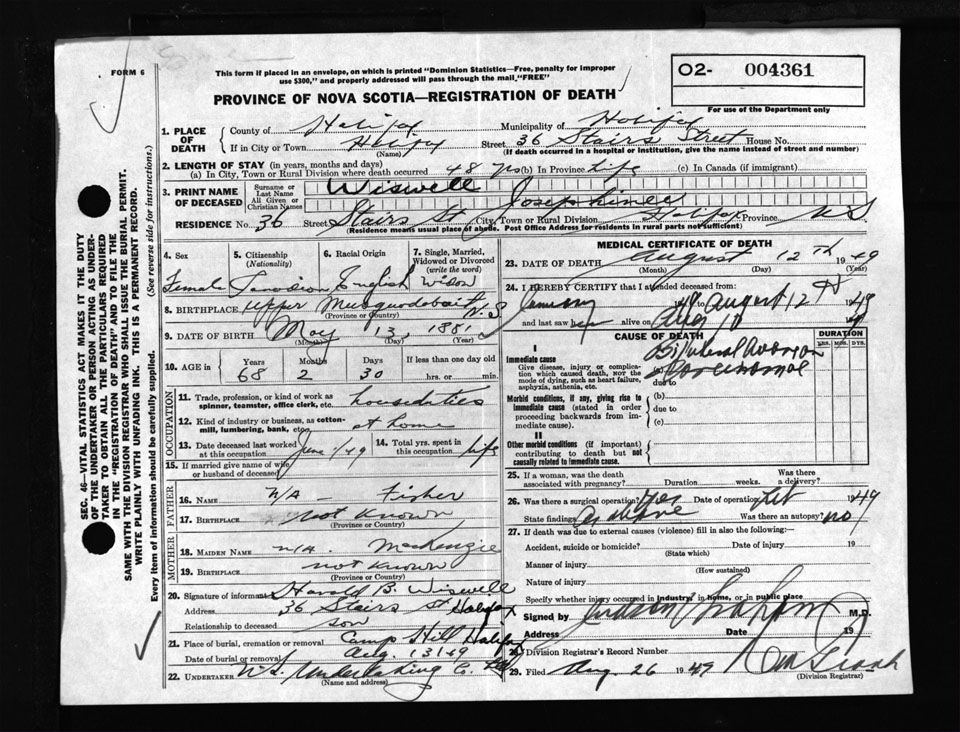 FORM 6
This form if placed in an envelope, on which is printed "Dominion Statistics—Free, penalty for improper
use $300," and properly addressed will pass through the mail "FREE"
O2- 004361
For use of the Department only
PROVINCE OF NOVA SCOTIA—REGISTRATION OF DEATH
1. PLACE OF DEATH
County of Halifax Municipality of Halifax
If in City or Town Halifax (Name) Street 36 Stairs Street House No.
(If death occurred in a hospital or institution, give the name instead of street and number)
2. LENGTH OF STAY (in years, months and days)
(a) In City, Town or Rural Division where death occurred 48 yrs (b) In Province Life (c) In Canada (if immigrant)
3. PRINT NAME OF DECEASED
Surname or Last Name Wiswell
All Given or Christian Names Josephine
RESIDENCE No. 36 Street Stairs St City, Town or Rural Division Halifax Province N S
(Residence means usual place of abode. Post Office Address for residents in rural parts not sufficient)
4. Sex Female
5. Citizenship (Nationality) Canadian
6. Racial Origin English
7. Single, Married, Widowed or Divorced (write the word) Widow
8. BIRTHPLACE Upper Musquodoboit N.S
(Province or Country)
9. DATE OF BIRTH May 13, 1881
(Month) (Day) (Year)
10. AGE in Years 68 Months 2 Days 30 If less than one day old hrs. or min.
OCCUPATION
11. Trade, profession, or kind of work as spinner, teamster, office clerk, etc. housduties
12. Kind of industry or business, as cotton-mill, lumbering, bank, etc. at home
13. Date deceased last worked at this occupation June /49
14. Total yrs. spent in this occupation life
15. If married give name of wife or husband of deceased
FATHER
16. NAME N/A - Fisher
17. BIRTHPLACE not known
(Province or Country)
MOTHER
18. MAIDEN NAME n/A. MacKenzie
19. BIRTHPLACE not known
(Province or Country)
20. Signature of informant Harold B. Wiswell
Address 36 Stairs St Halifax
Relationship to deceased son
21. Place of burial, cremation or removal Camp Hill Halifax
Date of burial or removal Aug. 13/49
22. UNDERTAKER N.S. Undertaking C. Ltd
(Name and address)
MEDICAL CERTIFICATE OF DEATH
23. DATE OF DEATH August 12TH 1949
(Month) (Day) (Year)
24. I HEREBY CERTIFY that I attended deceased from:
January 49 to August 12th 1949
and last saw her alive on Aug 10
CAUSE OF DEATH
DURATION
YRS. MOS. DYS.
I
Immediate cause
Give disease, injury or complication which caused death, NOT the mode of dying, such as heart failure, asphyxia, asthenia, etc.
Bilateral ovarian
due to
Morbid conditions, if any, giving rise to immediate cause (stated in order proceeding backwards from immediate cause).
(b)
due to
(c)
II
Other morbid conditions (if important) contributing to death but not causally related to immediate cause.
25. If a woman, was the death associated with pregnancy? Duration weeks. Was there a delivery?
26. Was there a surgical operation? Yes Date of operation Feb 1949
State findings as above Was there an autopsy? no
27. If death was due to external causes (violence) fill in also the following:—
Accident, suicide or homicide? Date of injury 19
(State which)
Manner of injury
(How sustained)
Nature of injury
Specify whether injury occurred in industry, in home, or in public place
Signed by Judson Graham M.D.
Address Date 19
28. Division Registrar's Record Number
29. Filed Aug. 26 1949
(Division Registrar)
SEC. 46—VITAL STATISTICS ACT MAKES IT THE DUTY
OF THE UNDERTAKER OR PERSON ACTING AS UNDERTAKER
TO OBTAIN ALL THE PARTICULARS REQUIRED
IN THE "REGISTRATION OF DEATH" AND TO FILE THE
SAME WITH THE DIVISION REGISTRAR WHO SHALL ISSUE THE BURIAL PERMIT.
WRITE PLAINLY WITH UNFADING INK. THIS IS A PERMANENT RECORD.
Every item of information should be carefully supplied. (See reverse side for instructions.)